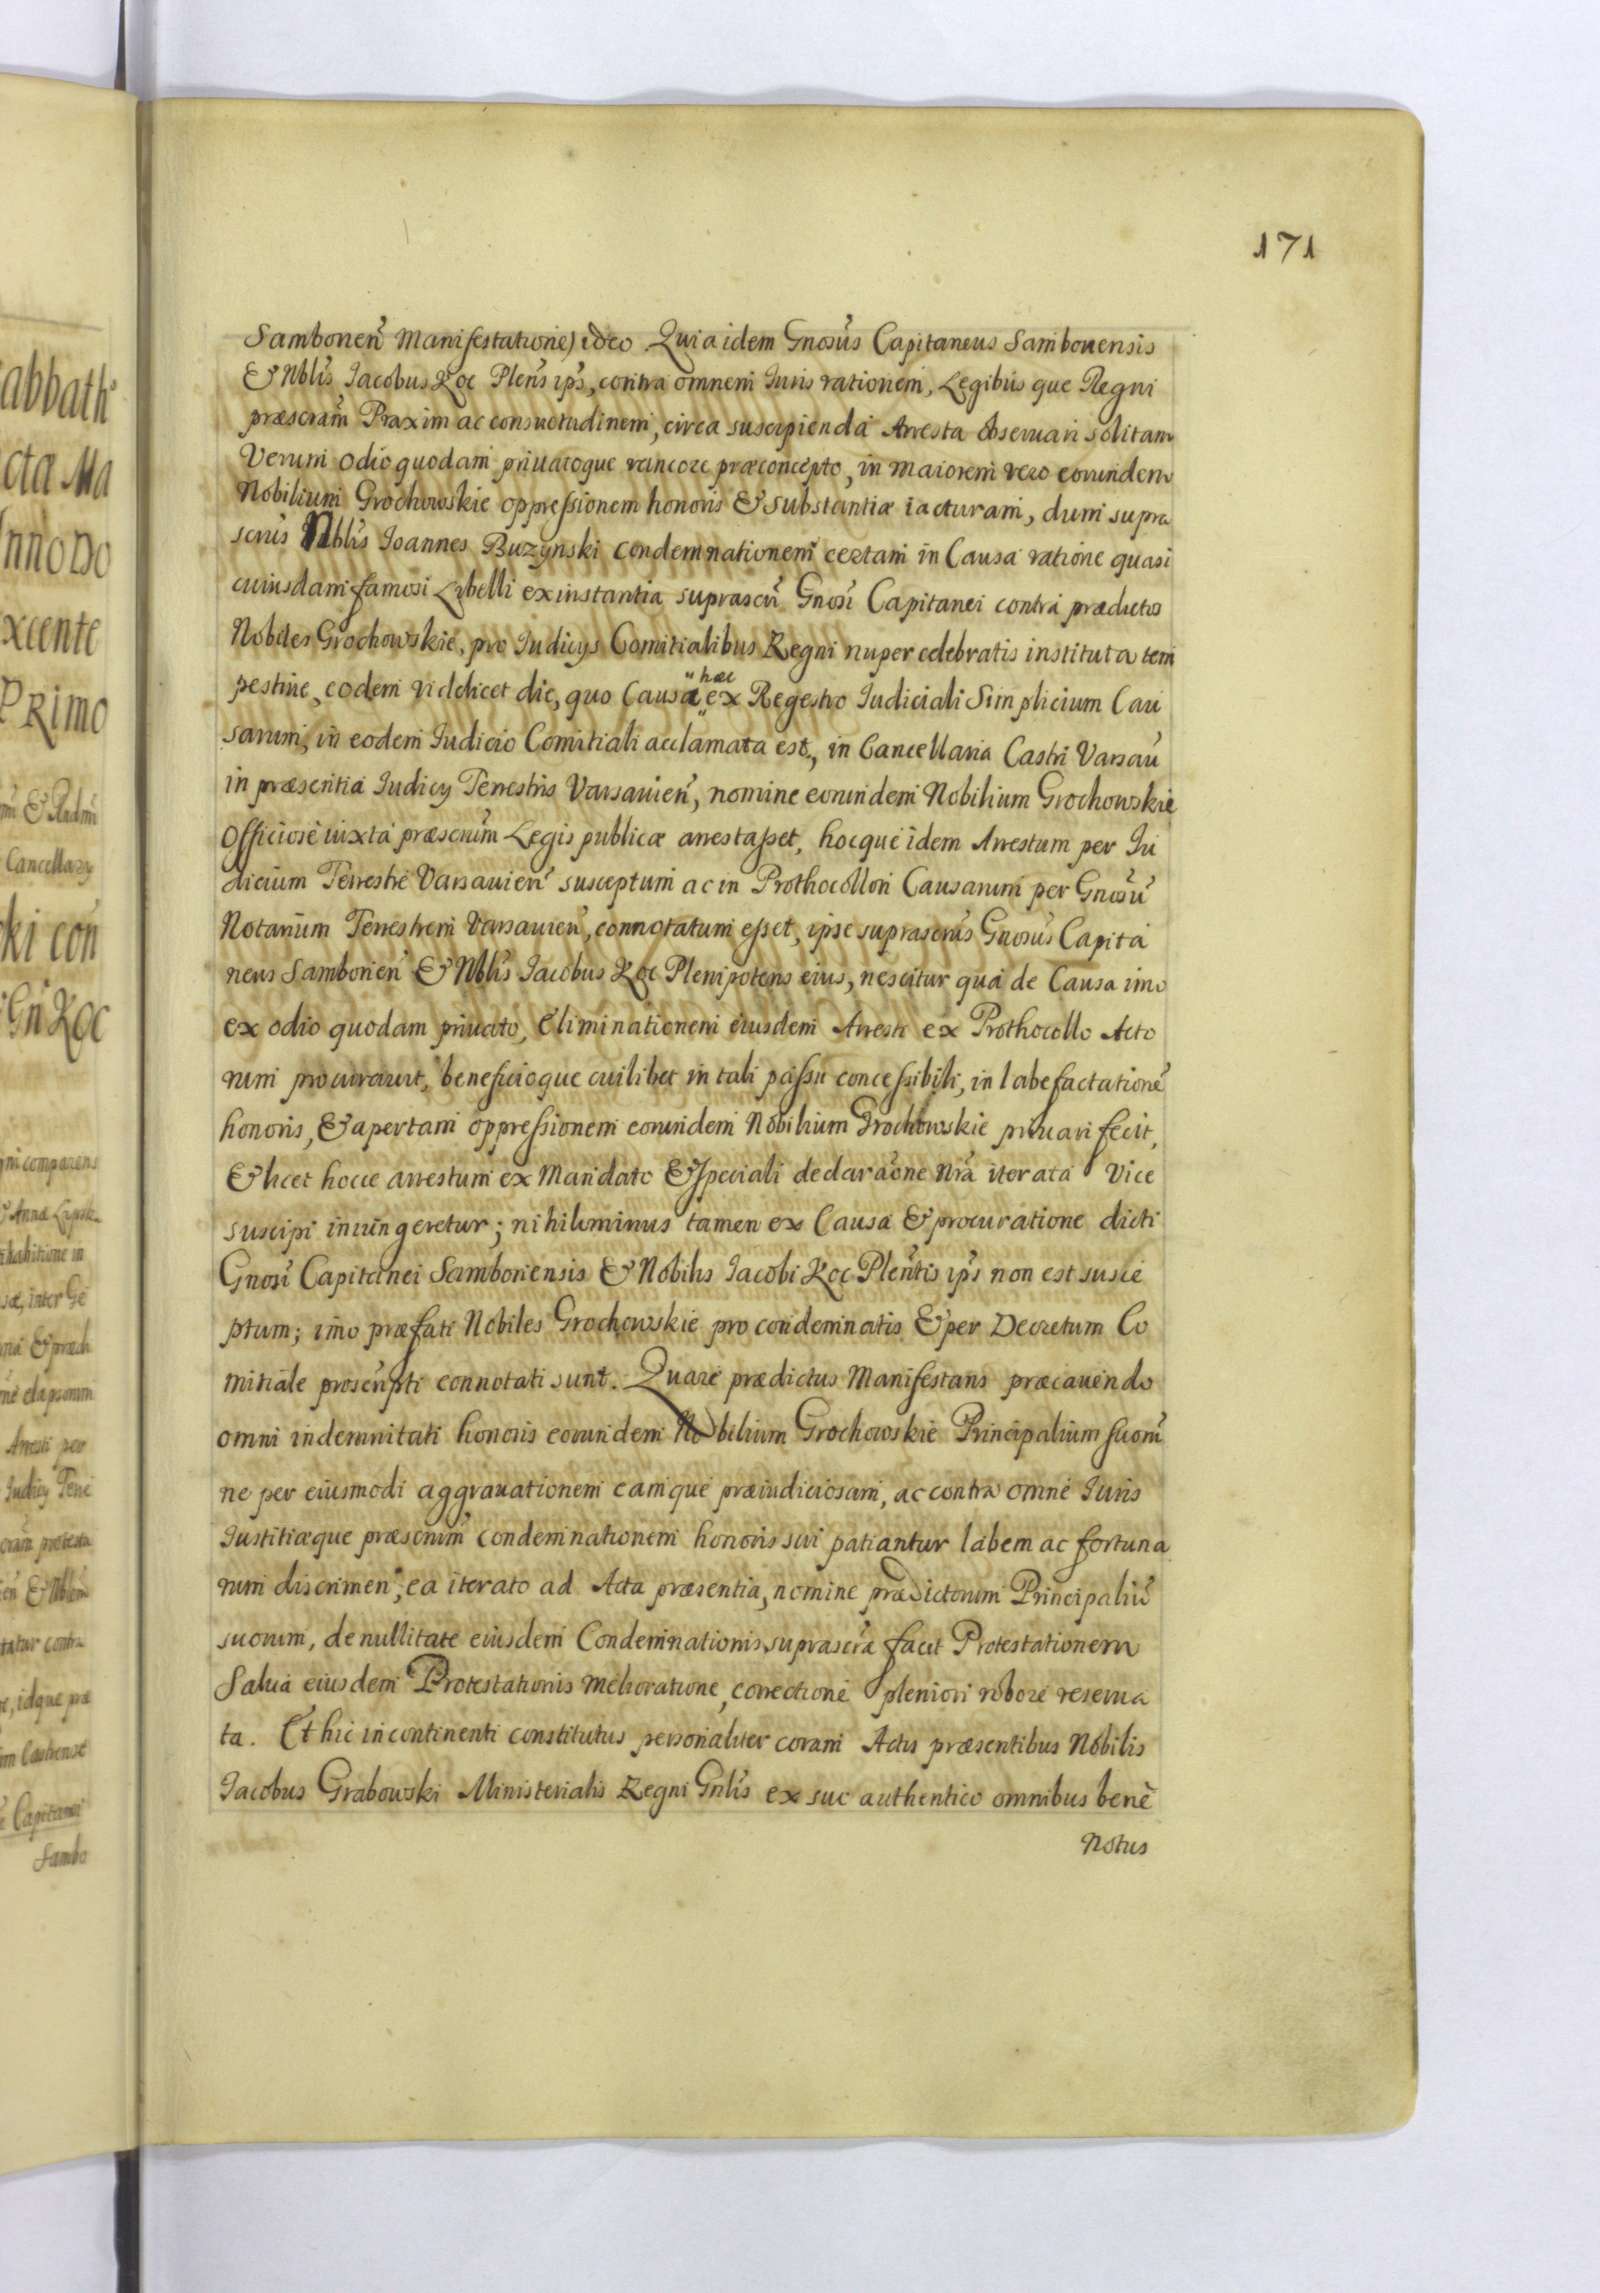 171
Sambonen̄ Manifestatione) ideo Quia idem Gnosūs Capitaneus Sambonensis
& Nblīs Iacobus Koc Plen̄s ips̄, contra omnem Iuris rationem, Legibus que Regni
præscram̄ Praxim ac consuetudinem, circa suscipienda Arresta obseruari solitam
Verum odio quodam priuatoque rancore præconcepto, in maiorem vero eorundem
Nobilium Grochowskie oppressionem honoris & substantiæ iacturam, dum supra
scrūs Nblīs Ioannes Buzynski condemnationem certam in Causa ratione quasi
cuiusdam famosi Lybelli ex instantia suprascrī Gnosī Capitanei contra prædictos
Nobiles Grochowskie, pro Iudicys Comitialibus Regni nuper celebratis instituta tem
pestiue, eodem videlicet die, quo Causa hæc ex Regestro Iudiciali Simplicium Cau
sarum, in eodem Iudicio Comitiali acclamata est, in Cancellaria Castri Varsau̅
in præsentia Iudicy Terrestris Varsauien̄, nomine eorundem Nobilium Grochowskie
Officiose iuxta præscrūm Legis publicæ arrestasset, hocque idem Arrestum per Iu
dicium Terrestre Varsauien̄ susceptum ac in Prothocollon Causarum per Gnosū
Notarium Terrestrem Varsauien̄, connotatum esset, ipse suprascrūs Gnosūs Capita
neus Sambonen̄ & Nblīs Iacobus Koc Plenipotens eius, nescitur qua de Causa imo
ex odio quodam priuato, Eliminationem eiusdem Arresti ex Prothocollo Acto
rum procurauit, beneficioque cuilibet in tali passu concessibili, in labefactationē
honoris, & apertam oppressionem eorundem Nobilium Grochowskie priuari fecit,
& licet hocce arrestum ex Mandato & speciali declaraōne Nr̄a iterata Vice
suscipi iniungeretur; nihilominus tamen ex Causa & procuratione dicti
Gnosī Capitanei Samboriensis & Nobilis Iacobi Koc Plen̄tis ips̄ non est susce
ptum; imo præfati Nobiles Grochowskie pro condemnatis & per Decretum Co
mitiale proscripti connotati sunt. Quare prædictus Manifestans præcauendo
omni indemnitati honoris eorundem Nobilium Grochowskie Principalium suorū
ne per eiusmodi aggrauationem eamque præiudiciosam, ac contra omne Iuris
Iustitiæque præscrūm condemnationem honoris sui patiantur labem ac fortuna
rum discrimen, ea iterato ad Acta præsentia, nomine prædictorum Principaliū
suorum, de nullitate eiusdem Condemnationis suprascr̄æ facit Protestationem
Salua eiusdem Protestationis melioratione, correctione pleniori robore reserua
ta. Et hic in continenti constitutus personaliter coram Actis præsentibus Nobilis
Iacobus Grabowski Ministerialis Regni Gnlīs ex suc authentico omnibus benè
Notus